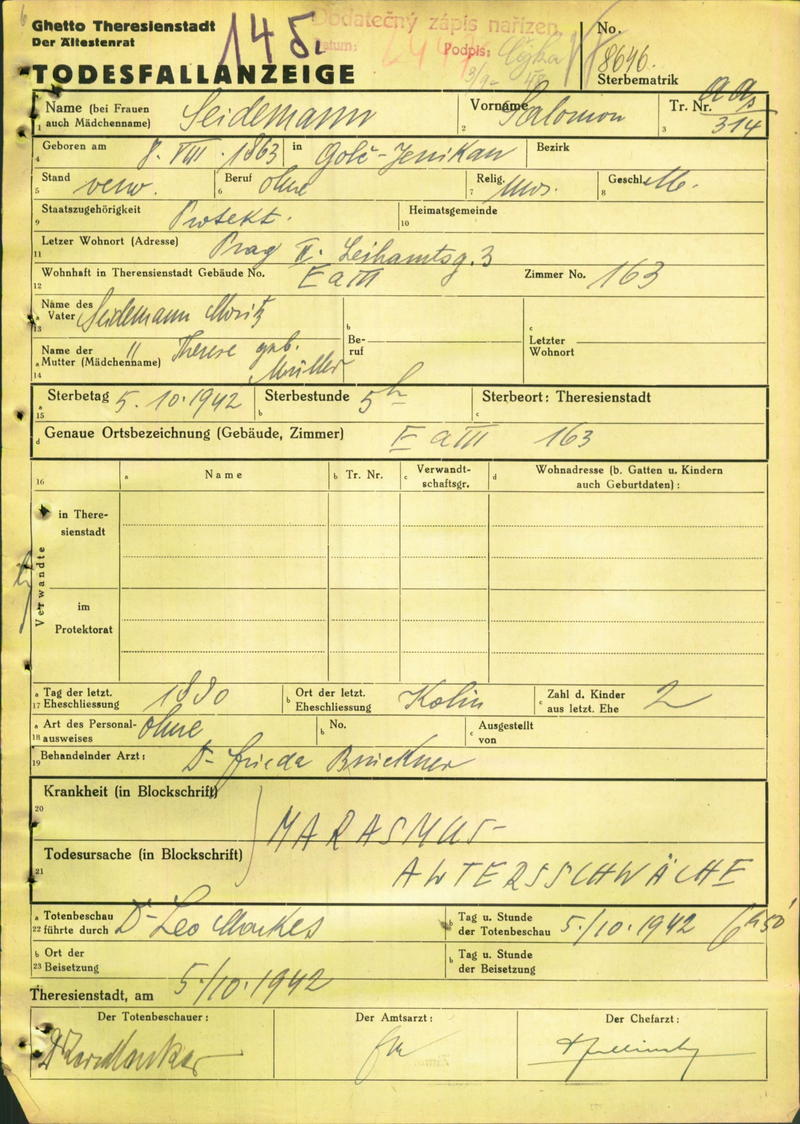 Ghetto Theresienstadt
Der Ältestenrat
TODESFALLANZEIGE
Dodatečný zápis nařízen.
Datum: Podpis:
No. 8646.
Sterbematrik
Name (bei Frauen auch Mädchenname) Seidemann
1
Vorname Salomon
2
Tr. Nr. 314
3
Geboren am 8. VIII. 1863 in Golč-Jenikau Bezirk
4
Stand verw. Beruf ohne Relig. mos. Geschl. M.
5 6 7 8
Staatszugehörigkeit Protekt. Heimatsgemeinde
9 10
Letzer Wohnort (Adresse) Prag II. Leihamtsg. 3
11
Wohnhaft in Theresienstadt Gebäude No. E a III Zimmer No. 163
12
Name des Vater Seidemann Moritz
a 13
b Beruf
c Letzter Wohnort
Name der Mutter (Mädchenname) " Therese geb. Müller
a 14
Sterbetag 5. 10. 1942 Sterbestunde 5 h Sterbeort: Theresienstadt
a 15 b c
Genaue Ortsbezeichnung (Gebäude, Zimmer) E a III 163
d
16 a Name b Tr. Nr. c Verwandtschaftsgr. d Wohnadresse (b. Gatten u. Kindern auch Geburtdaten) :
Verwandte
in Theresienstadt
im Protektorat
a 17 Tag der letzt. Eheschliessung 1880 b Ort der letzt. Eheschliessung Kolin c Zahl d. Kinder aus letzt. Ehe 2
a 18 Art des Personalausweises ohne b No. c Ausgestellt von
19 Behandelnder Arzt: Dr Frieda Bruckner
Krankheit (in Blockschrift)
20
MARASMUS-
Todesursache (in Blockschrift)
21
ALTERSSCHWÄCHE
a 22 Totenbeschau führte durch Dr Leo Markes b Tag u. Stunde der Totenbeschau 5./10. 1942 6h 50'
b 23 Ort der Beisetzung b Tag u. Stunde der Beisetzung
Theresienstadt, am 5./10. 1942
Der Totenbeschauer: Der Amtsarzt: Der Chefarzt: